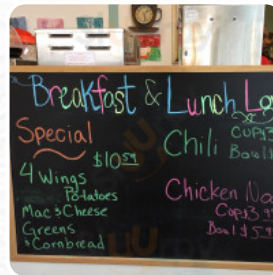 Breakfast & Lunch
Special
$10.59
4 Wings
Potatoes
Mac & Cheese
Greens
*Cornbread
Chili
Cup
Bowl
Chicken
Cup $3
Bowl $5